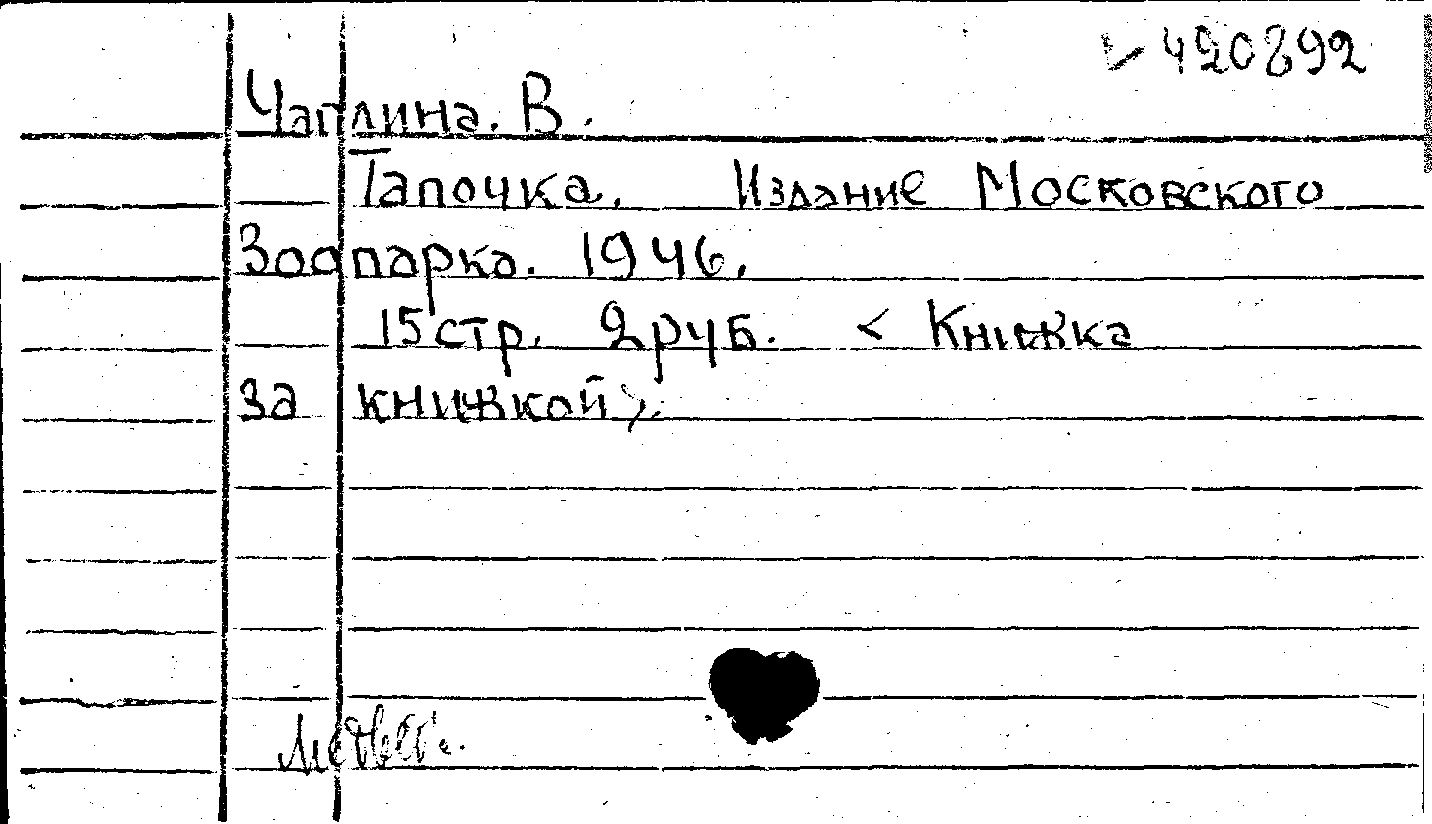 420892
Чаплина. В.
Тапочка. Издание Московского
Зоопарка. 1946.
15 стр. 2 руб. < Книжка
за книжкой >.